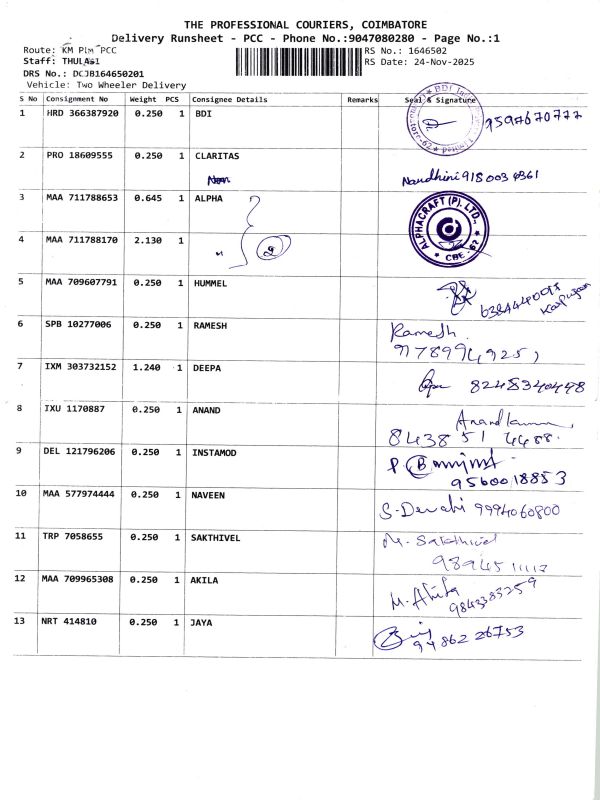 THE PROFESSIONAL COURIERS, COIMBATORE
Delivery Runsheet - PCC - Phone No.:9047080280 - Page No.:1
Route: KM Plm PCC RS No.: 1646502
Staff: THULASI RS Date: 24-Nov-2025
DRS No.: DCJB164650201
Vehicle: Two Wheeler Delivery
S No Consignment No Weight PCS Consignee Details Remarks Seal & Signature
1 HRD 366387920 0.250 1 BDI 9597670777
2 PRO 18609555 0.250 1 CLARITAS
Nandhini 918003 4361
3 MAA 711788653 0.645 1 ALPHA ALPHACRAFT (P). LTD., CBE - 62
4 MAA 711788170 2.130 1
5 MAA 709607791 0.250 1 HUMMEL
6 SPB 10277006 0.250 1 RAMESH Ramesh
7 IXM 303732152 1.240 1 DEEPA 8248340498
8 IXU 1170887 0.250 1 ANAND Anand kumar
8438 51 4488.
9 DEL 121796206 0.250 1 INSTAMOD
9560018853
10 MAA 577974444 0.250 1 NAVEEN 9994060800
11 TRP 7058655 0.250 1 SAKTHIVEL M. Sakthivel
12 MAA 709965308 0.250 1 AKILA M. Akila
9843383259
13 NRT 414810 0.250 1 JAYA
94862 26753